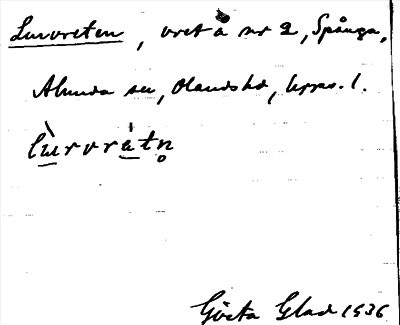 Lurvreten, vret å nr 2, Spånga,
Alunda sn, Olands hd, Upps. l.
lùrvrätn̥
Gösta Glad 1936